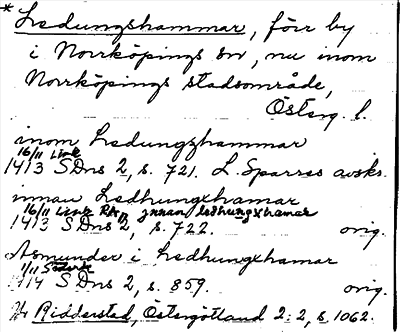 * Ledungshammar, förr by
i Norrköpings sn, nu inom
Norrköpings stadsområde,
Österg. l.
inom Ledungzhammar
16/11 Link
1413 SDns 2, s. 721. L. Sparres avskr.
innan Ledhungxhamar
16/11 Link RA innan ledhungxhamar
1413 SDns 2, s. 722. orig.
Asmunder i Ledhungxhamar
1/11 Söderk
1414 SDns 2, s. 859. orig.
Ridderstad, Östergötland 2:2, s. 1062.